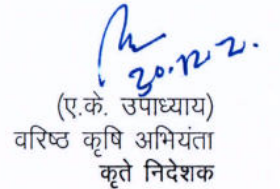 20.12.2.
(ए.के. उपाध्याय)
वरिष्ठ कृषि अभियंता
कृते निदेशक